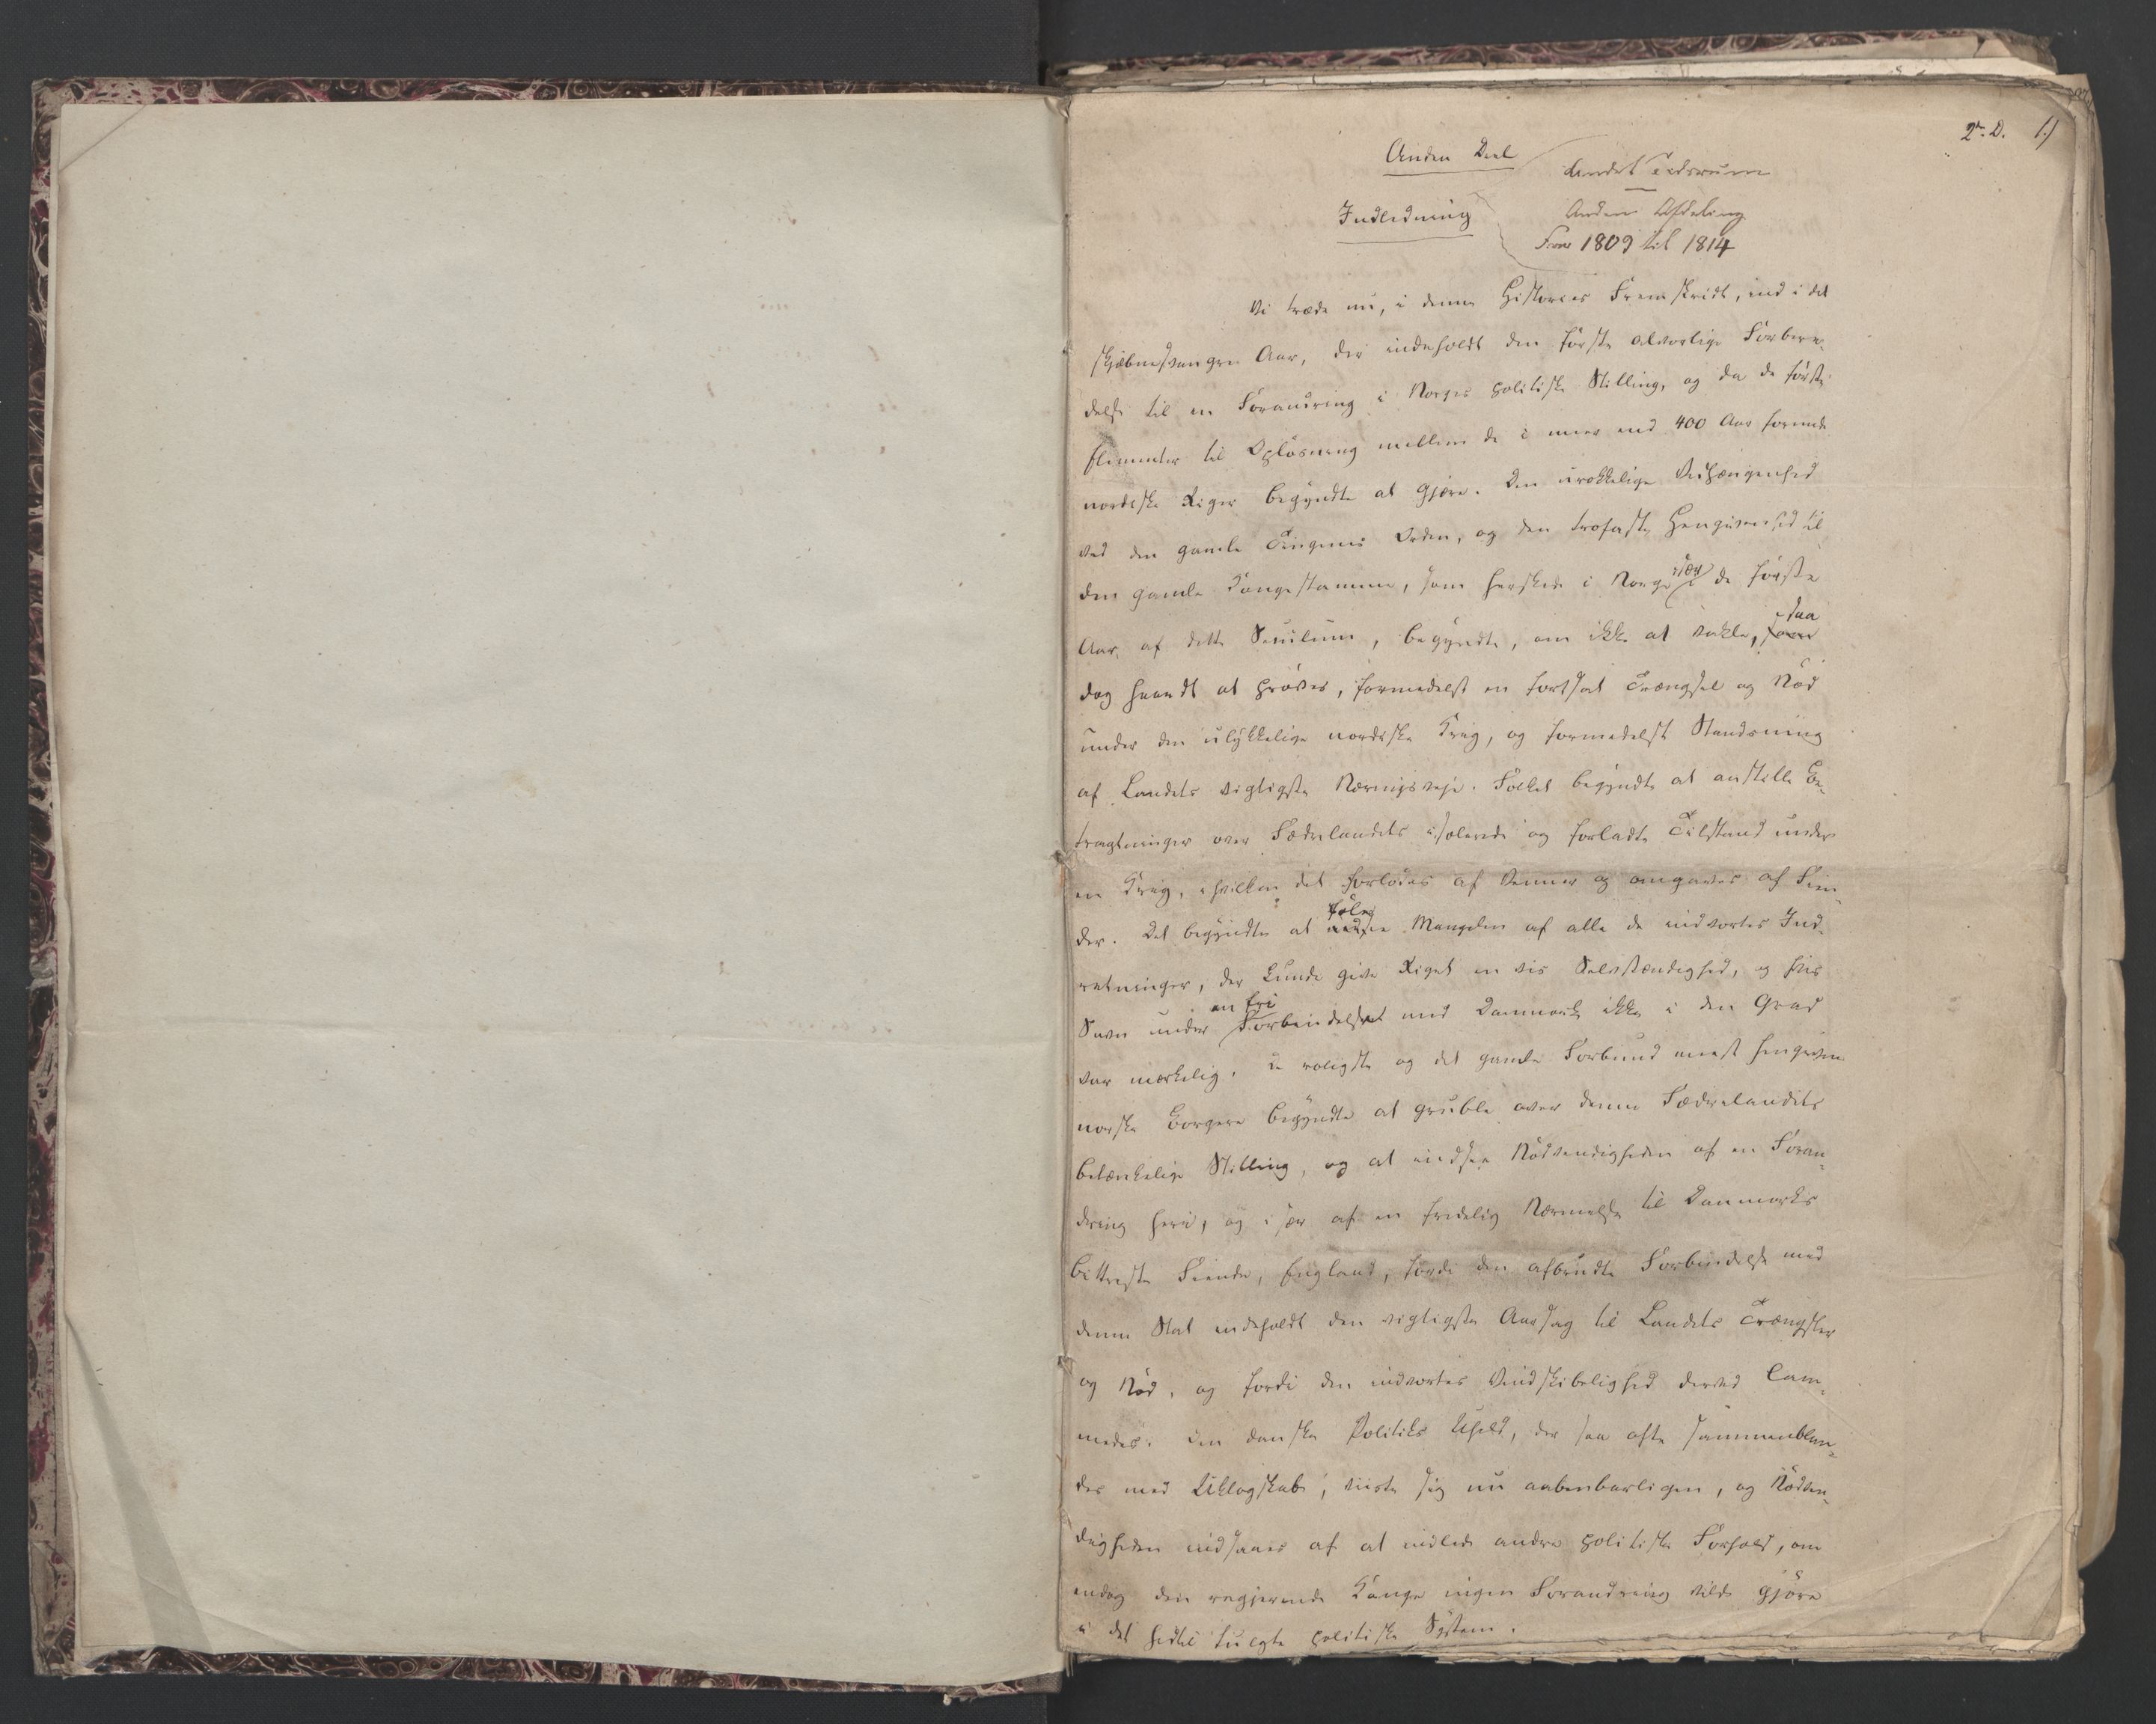 2n. D. 1.)
Anden Deel
Andet Tidsrum
Indledning
Anden Afdeling
Fra 1809 til 1814
Vi træde nu, i denne Histories Fremskridt, ind i det
skjæbnesvangre Aar, der indeholdt den første alvorlige Forbere-
delse til en Forandring i Norges politiske Stilling, og da de første
Elementer til Opløsning mellem de i meer end 400 Aar forenede
nordiske Riger begyndte at gjære. Den urokkelige Vedhængenhed
ved den gamle Tingenes Orden, og den trofaste Hengivenhed til
den gamle Kongestamme, som herskede i Norge især i de første
Aar af dette Seculum, begyndte, om ikke at vakle, saa
dog haardt at prøves, formedelst en fortsat Trængsel og Nød
under den ulykkelige nordiske Krig, og formedelst Standsning
af Landets vigtigste Næringsveje. Folket begyndte at anstille Be-
tragtninger over Fædrelandets isolerede og forladte Tilstand under
en Krig, i hvilken det forlodes af Venner og omgaves af Fien-
der. Det begyndte at føle Mangelen af alle de indvortes Ind-
retninger, der kunde give Riget en vis Selvstændighed, og hvis
Savn under en fri Forbindelse med Danmark ikke i den Grad
var mærkelig. De roligste og det gamle Forbund meest hengivne
norske Borgere begyndte at gruble over denne Fædrelandets
betænkelige Stilling, og at indsee Nødvendigheden af en Foran-
dring heri, og især af en fredelig Nærmelse til Danmarks
bittreste Fiende, England, fordi den afbrudte Forbindelse med
denne Stat indeholdt den vigtigste Aarsag til Landets Trængsler
og Nød, og fordi den indvortes Vindskibelighed derved lam-
medes. Den danske Politiks Uheld, der saa ofte sammenblan-
des med Uklogskab, viiste sig nu aabenbarligen, og Nødven-
digheden indsaaes af at indlede andre politiske Forhold, om
endog den regjerende Konge ingen Forandring vilde gjøre
i det hidtil fulgte politiske System.